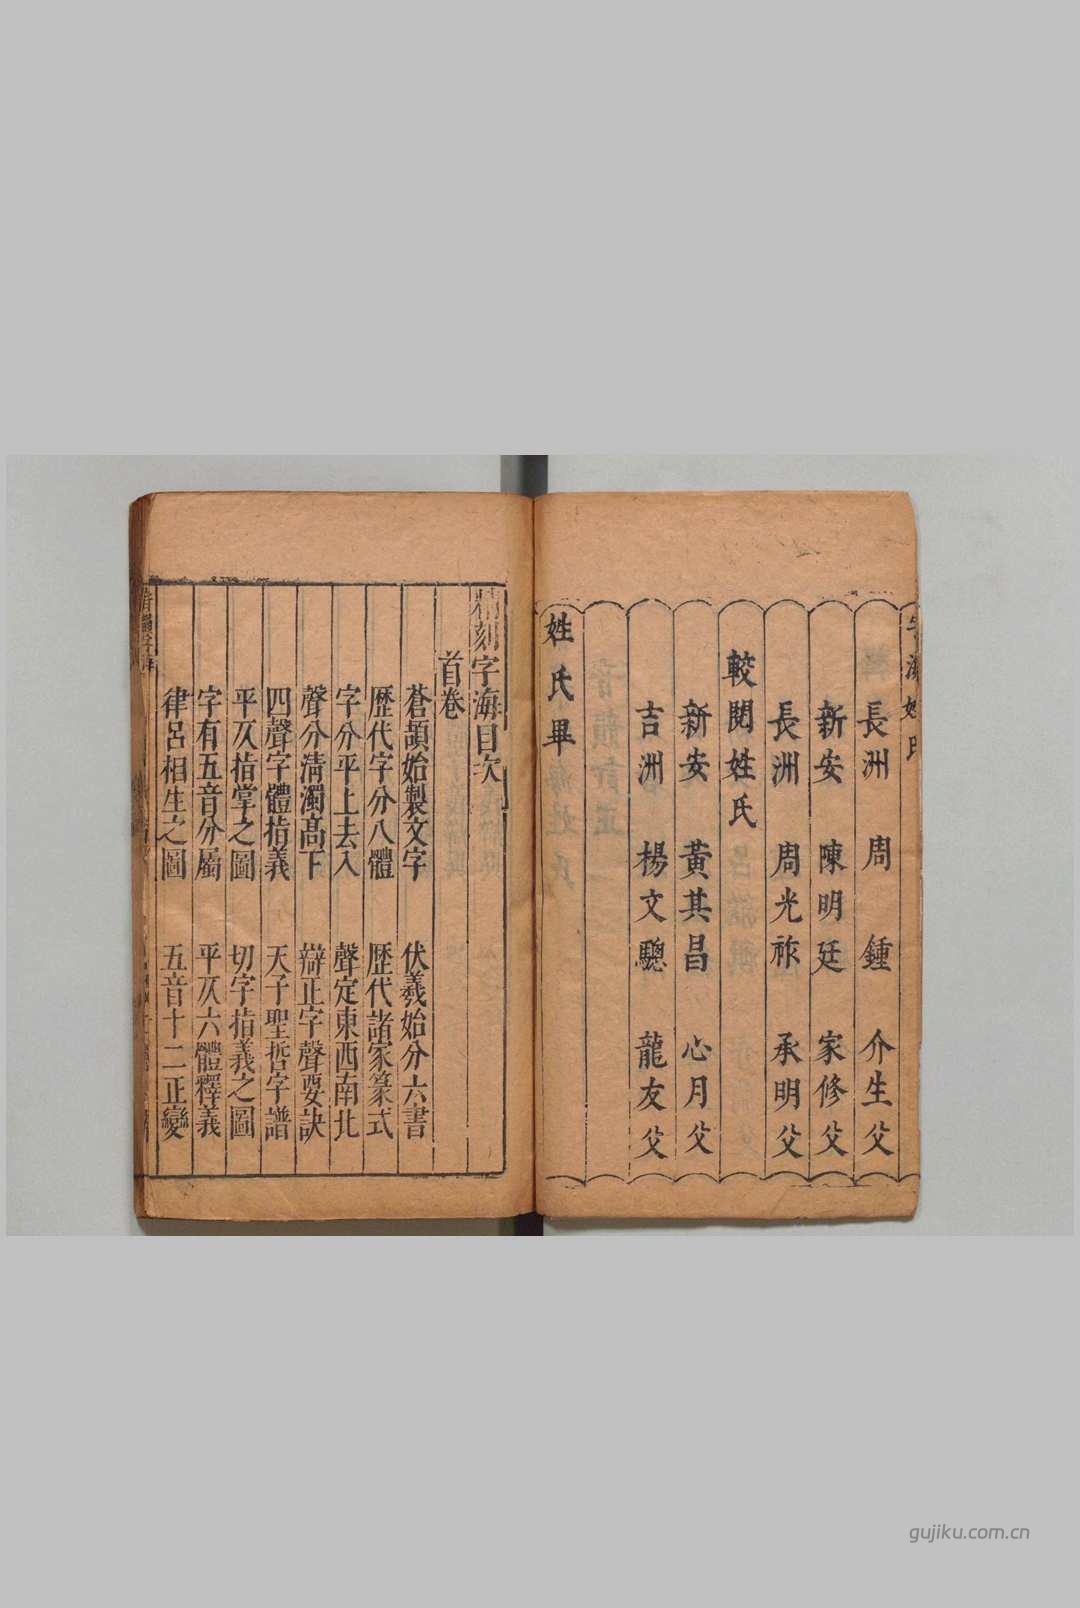 長洲 周 鍾 介生父
新安 陳明廷 家修父
長洲 周光祚 承明父
較閱姓氏
新安 黃其昌 心月父
吉洲 楊文驄 龍友父
姓氏畢
精刻字海目次
首卷
蒼頡始製文字 伏羲始分六書
歷代字分八體 歷代諸家篆式
字分平上去入 聲定東西南北
聲分清濁高下 辯正字聲要訣
四聲字體指義 天子聖哲字譜
平仄指掌之圖 切字指義之圖
字有五音分屬 平仄六體釋義
律呂相生之圖 五音十二正變
gujiku.com.cn